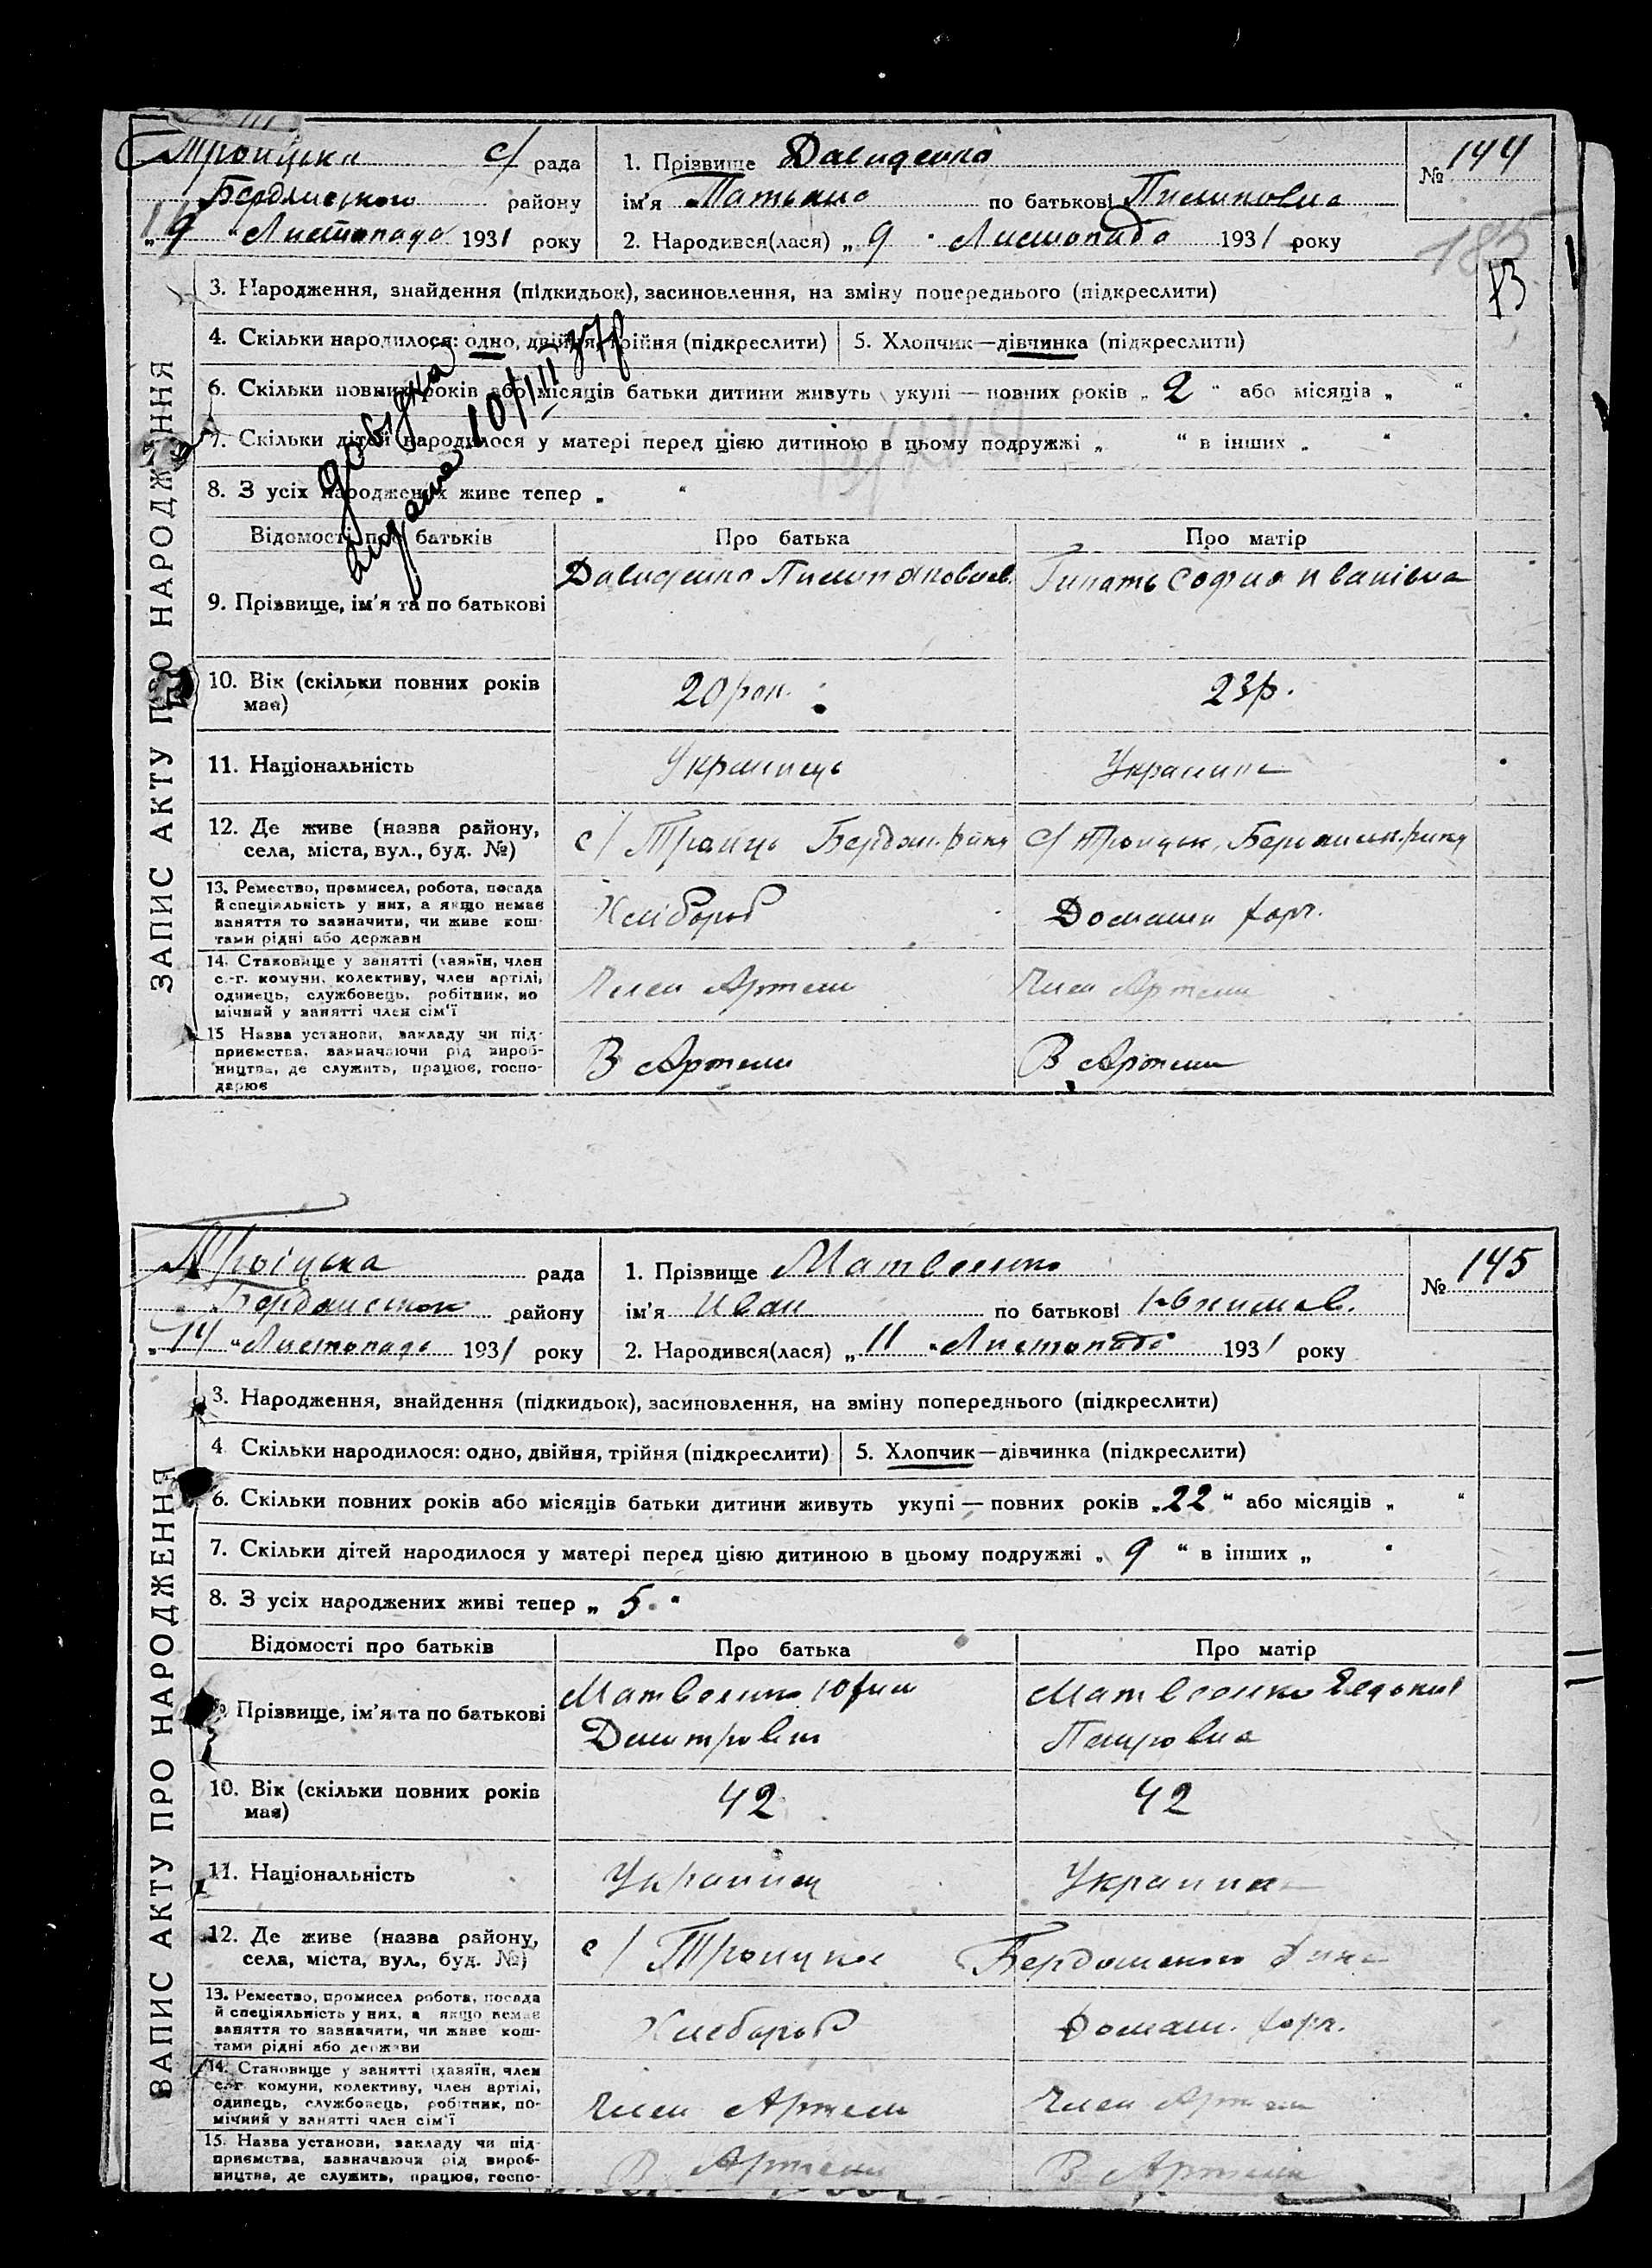 Троицька с/ рада
Бердянського району
„9 “ Листопада 1931 року
1. Прізвище Давиденко
ім'я Татьяна по батькові Пилиповна
2. Народився(лася) „ 9 “ Листопада 1931 року
№ 144
185
ЗАПИС АКТУ ПРО НАРОДЖЕННЯ
3. Народження, знайдення (підкидьок), засиновлення, на зміну попереднього (підкреслити)
4. Скільки народилося: одно, двійня, трійня (підкреслити) 5. Хлопчик—дівчинка (підкреслити)
6. Скільки повних років або місяців батьки дитини живуть укупі — повних років „ 2 “ або місяців „ “
7. Скільки дітей народилося у матері перед цією дитиною в цьому подружжі „ “ в інших „ “
8. З усіх народжених живе тепер „ “
довідка
видана 10/III 37р
Відомості про батьків Про батька Про матір
9. Прізвище, ім'я та по батькові Давиденко Пилип Яковлев. София Иванівна
10. Вік (скільки повних років має) 20 рок. 23р.
11. Національність Украинець Украинка
12. Де живе (назва району, села, міста, вул., буд. №) с/ Троицьк Бердян. р-ну с/ Троицьк. Бердянськ. р-ну
13. Ремество, промисел, робота, посада
й спеціяльність у них, а якщо немає
заняття то зазначити, чи живе кош-
тами рідні або держави
Хлібороб Домашн
14. Становище у занятті (хазяїн, член
с.-г. комуни, колективу, член артілі,
одинець, службовець, робітник, по
мічний у занятті член сім'ї
Член Артели Член Артели
15 Назва установи, закладу чи під-
приємства, зазначаючи рід вироб-
ництва, де служить, працює, госпо-
дарює
В Артели В Артели
Троіцька рада
Бердянського району
„ 14 “ Листопада 1931 року
1. Прізвище Матвеенко
ім'я Иван по батькові
2. Народився(лася) „ 11 “ Листопада 1931 року
№ 145
ЗАПИС АКТУ ПРО НАРОДЖЕННЯ
3. Народження, знайдення (підкидьок), засиновлення, на зміну попереднього (підкреслити)
4 Скільки народилося: одно, двійня, трійня (підкреслити) 5. Хлопчик—дівчинка (підкреслити)
6. Скільки повних років або місяців батьки дитини живуть укупі — повних років „ 22 “ або місяців „ “
7. Скільки дітей народилося у матері перед цією дитиною в цьому подружжі „ 9 “ в інших „ “
8. З усіх народжених живі тепер „ 5 “
Відомості про батьків Про батька Про матір
Прізвище, ім'я та по батькові
Матвеенко
Дмитрович
Матвеенко
Петровна
10. Вік (скільки повних років має) 42 42
11. Національність Украинец Украинка
12. Де живе (назва району, села, міста, вул., буд. №) с/ Троицкое Бердянского
13. Ремество, промисел робота, посада
й спеціяльність у них, а якщо немає
заняття то зазначити, чи живе кош-
тами рідні або держави
Хлебороб Домаш.
14. Становище у занятті (хазяїн, член
с.-г комуни, колективу, член артілі,
одинець, службовець, робітник, по-
мічний у занятті член сім'ї
Член Артели Член Артели
15. Назва установи, закладу чи під-
приємства, зазначаючи рід вироб-
ництва, де служить, працює, госпо-
В Артели В Артели